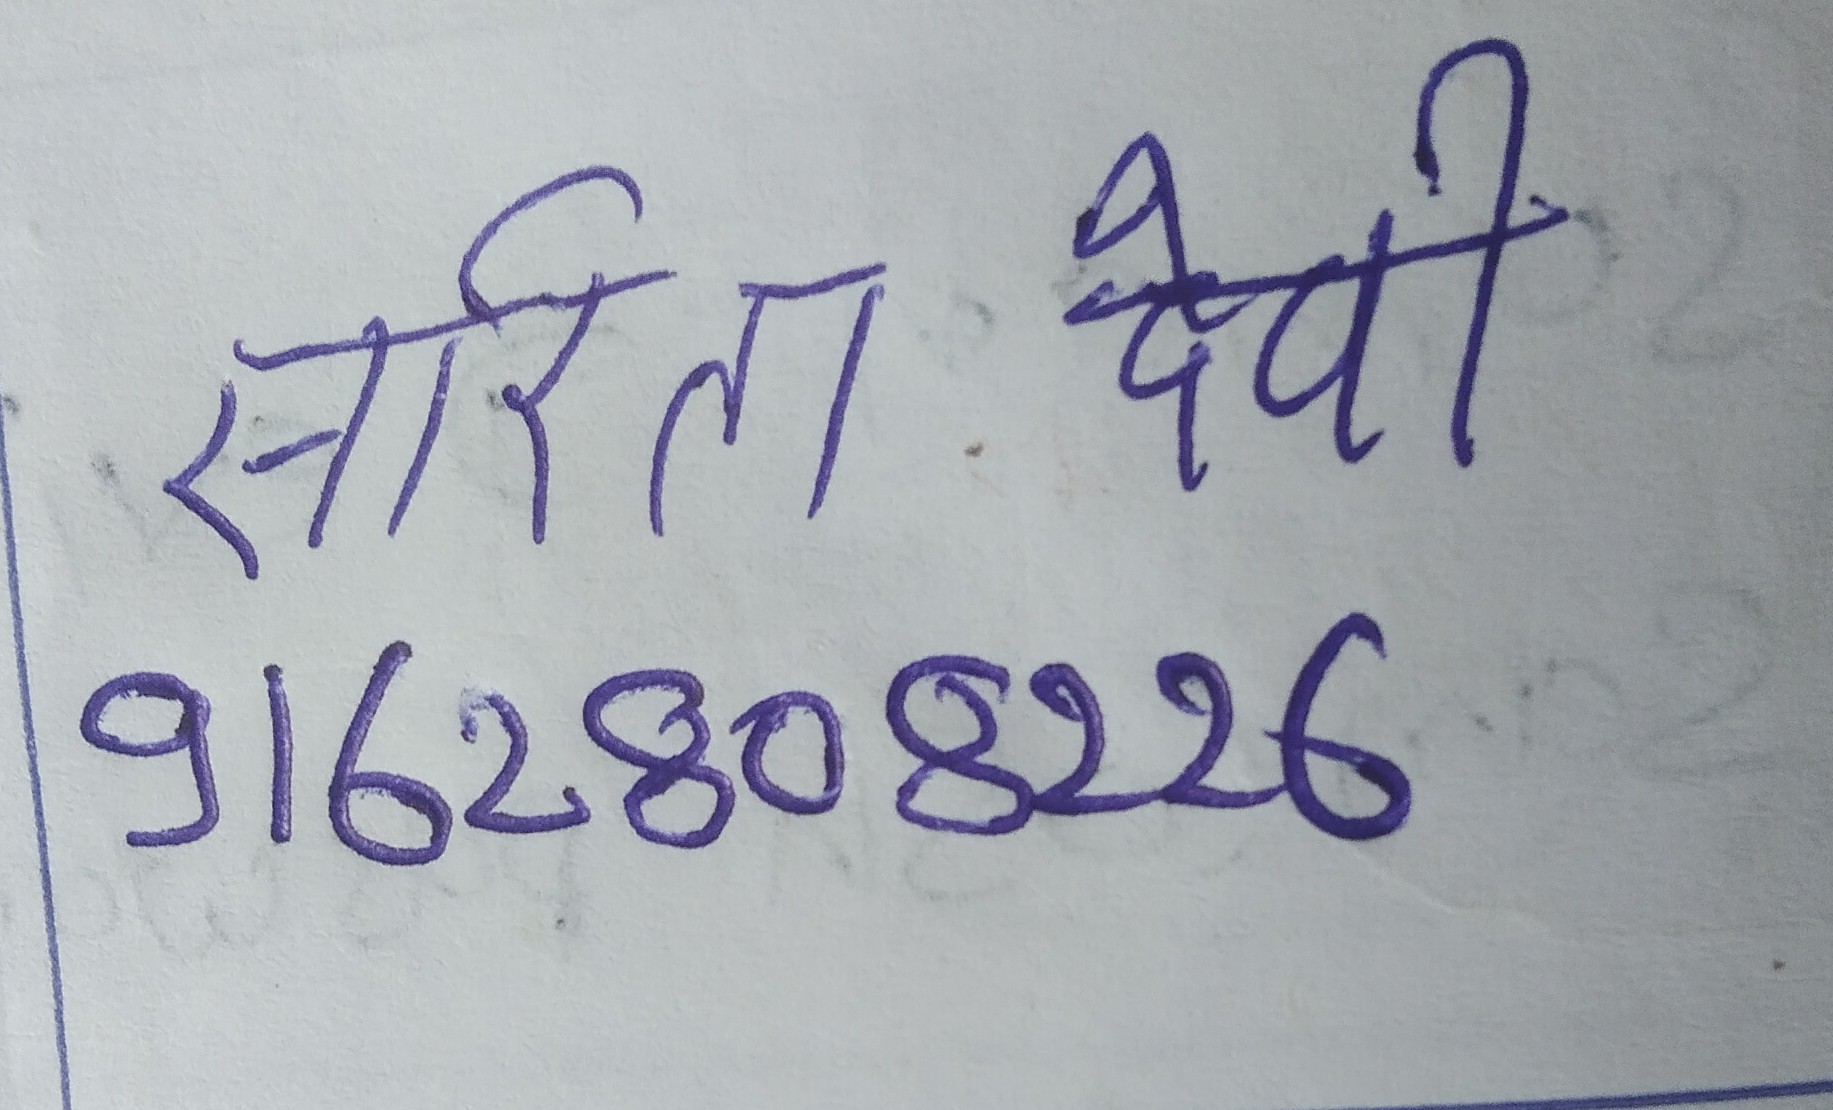 सरिता देवी
9162808226